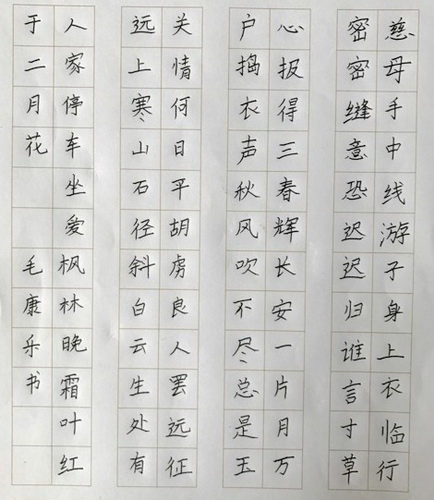 慈母手中线游子身上衣临行
密密缝意恐迟迟归谁言寸草
心报得三春辉长安一片月万
户捣衣声秋风吹不尽总是玉
关情何日平胡虏良人罢远征
远上寒山石径斜白云生处有
人家停车坐爱枫林晚霜叶红
于二月花 毛康乐书